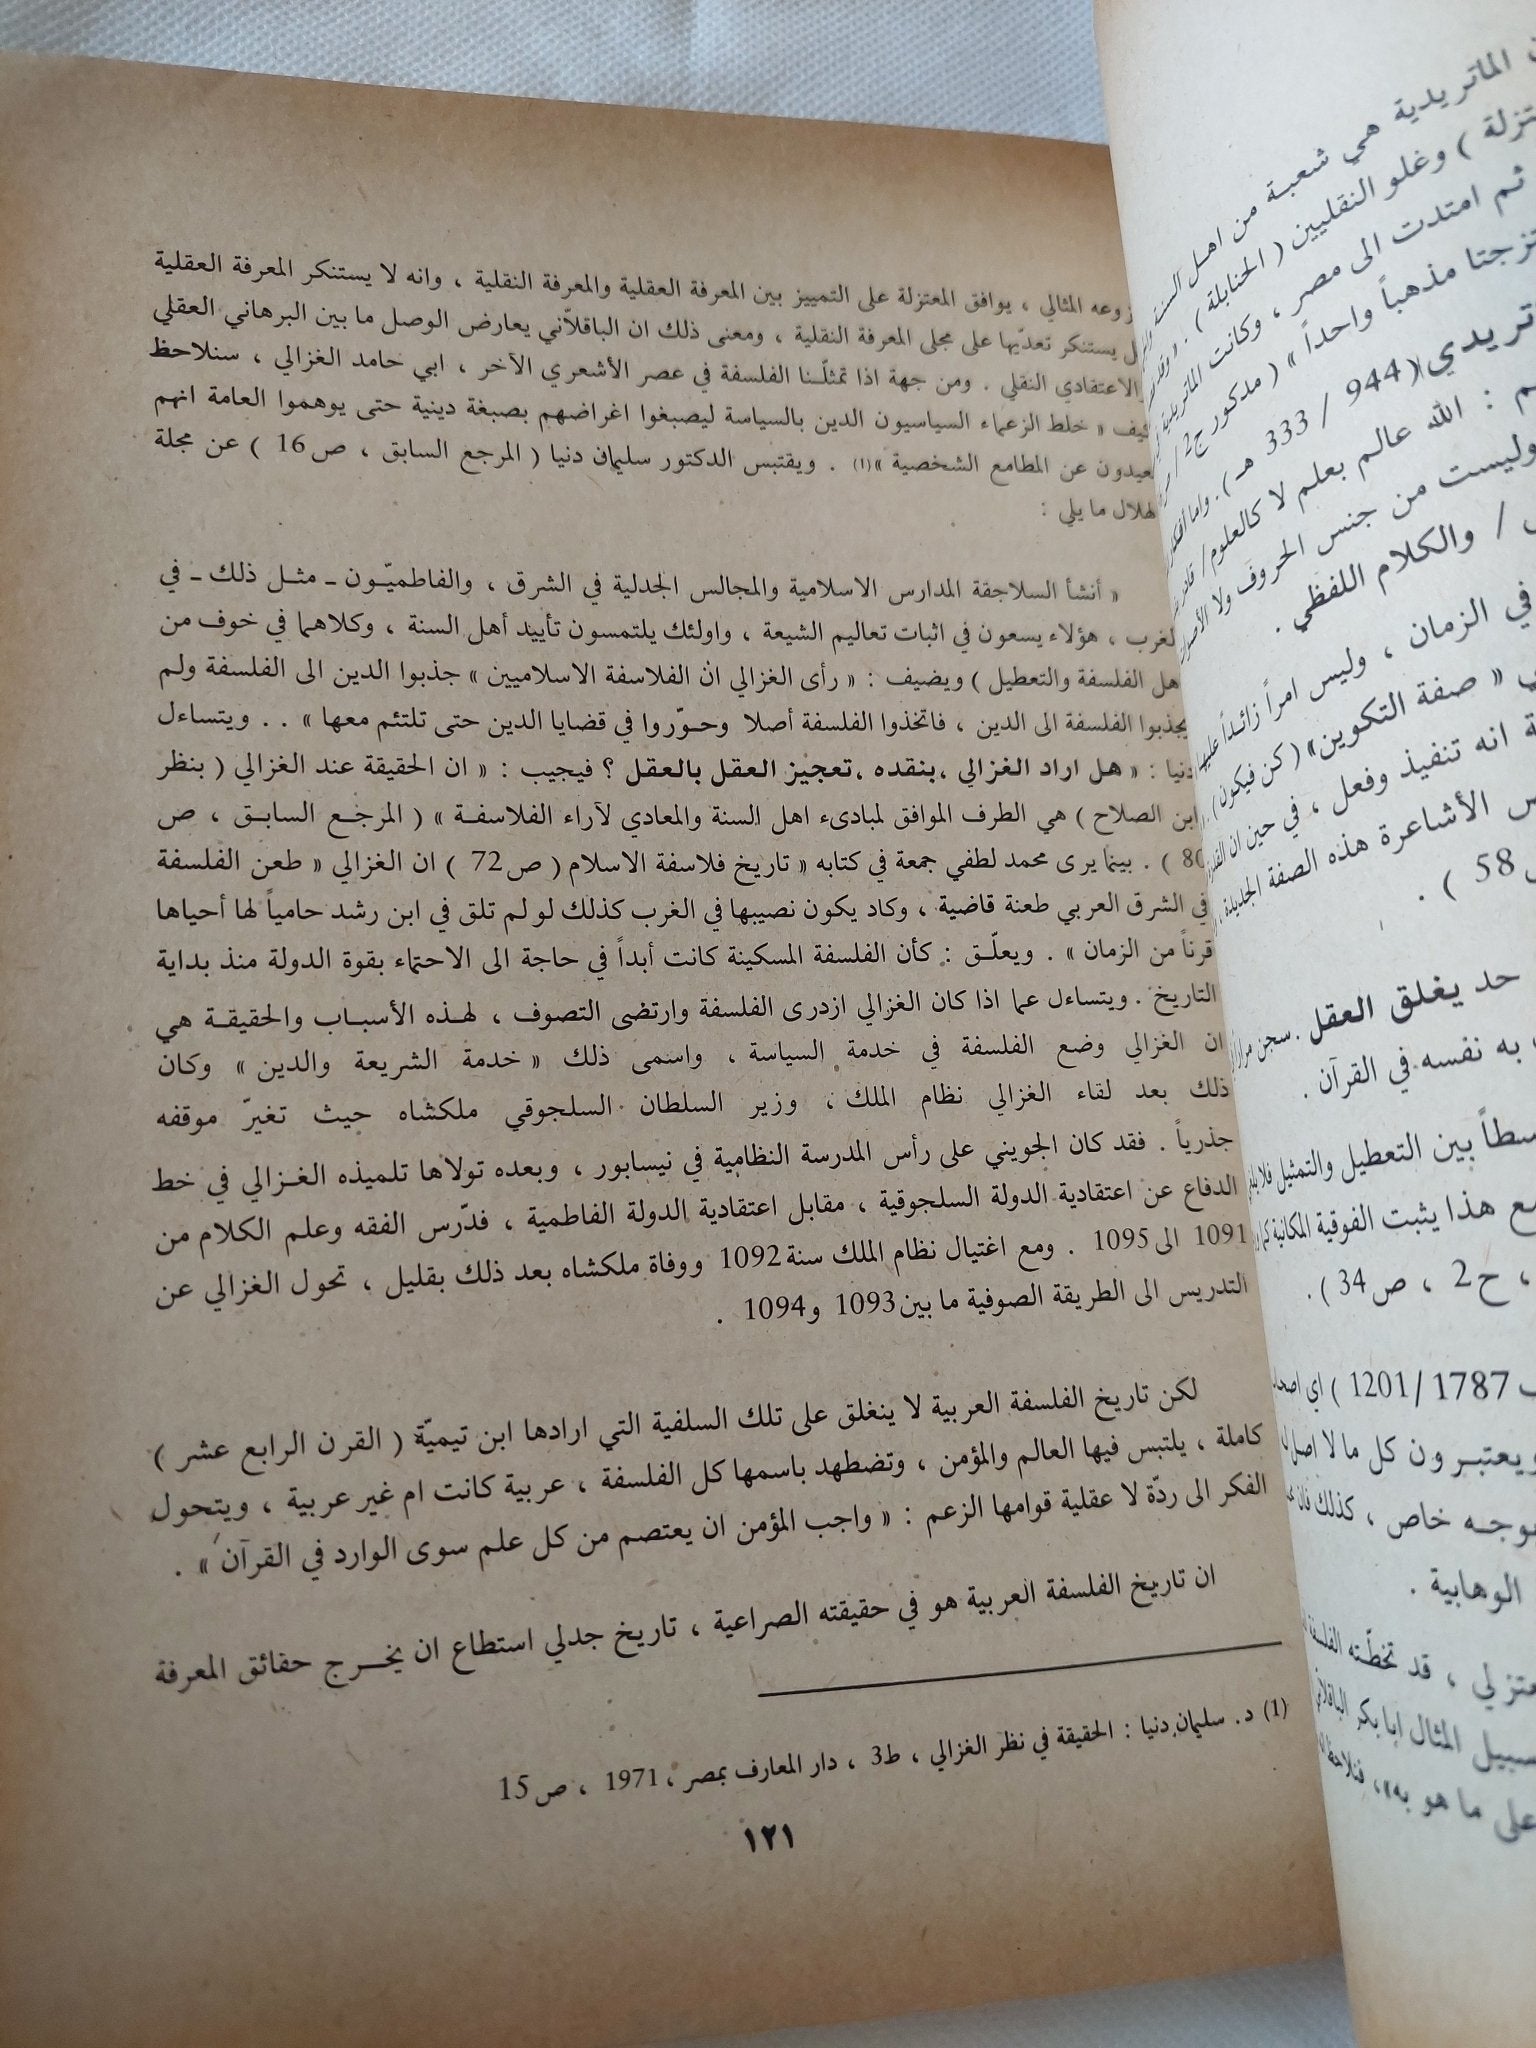 الماتريدية هي شعبة من اهل السنة
وغلو النقليين ( الحنابلة ) .
ثم امتدت الى مصر ، وكانت الماتريدية
مذهباً واحداً » ( مدكور ج2 /
944 / 333 هـ ) . واما
: الله عالم بعلم لا كالعلوم /
وليست من جنس الحروف ولا
/ والكلام اللفظي .
في الزمان ، وليس امراً زائداً
« صفة التكوين» ( كن فيكون )
انه تنفيذ وفعل ، في حين ان
الأشاعرة هذه الصفة الجديدة
58 ) .
حد يغلق العقل . سجن
به نفسه في القرآن .
بين التعطيل والتمثيل
هذا يثبت الفوقية المكانية
، ح2 ، ص34 ) .
1787 /1201 ) اي
ويعتبرون كل ما لا اصل
خاص ، كذلك
الوهابية .
، قد تخطّته
المثال ابا بكر
على ما هو به» ،
المثالي ، يوافق المعتزلة على التمييز بين المعرفة العقلية والمعرفة النقلية ، وانه لا يستنكر المعرفة العقلية
يستنكر تعدّيها على مجلى المعرفة النقلية ، ومعنى ذلك ان الباقلاّني يعارض الوصل ما بين البرهاني العقلي
الاعتقادي النقلي . ومن جهة اذا تمثلّنا الفلسفة في عصر الأشعري الآخر ، ابي حامد الغزالي ، سنلاحظ
« خلط الزعماء السياسيون الدين بالسياسة ليصبغوا اغراضهم بصبغة دينية حتى يوهموا العامة انهم
عن المطامع الشخصية »(1) . ويقتبس الدكتور سليمان دنيا ( المرجع السابق ، ص16 ) عن مجلة
ما يلي :
« أنشأ السلاجقة المدارس الاسلامية والمجالس الجدلية في الشرق ، والفاطميّون ـ مثل ذلك ـ في
، هؤلاء يسعون في اثبات تعاليم الشيعة ، واولئك يلتمسون تأييد أهل السنة ، وكلاهما في خوف من
الفلسفة والتعطيل ) ويضيف : « رأى الغزالي ان الفلاسفة الاسلاميين » جذبوا الدين الى الفلسفة ولم
يجذبوا الفلسفة الى الدين ، فاتخذوا الفلسفة أصلا وحوّروا في قضايا الدين حتى تلتئم معها » . . ويتساءل
دنيا : « هل اراد الغزالي ، بنقده ، تعجيز العقل بالعقل ؟ فيجيب : « ان الحقيقة عند الغزالي ( بنظر
ابن الصلاح ) هي الطرف الموافق لمبادىء اهل السنة والمعادي لآراء الفلاسفة » ( المرجع السابق ، ص
80 ) . بينما يرى محمد لطفي جمعة في كتابه « تاريخ فلاسفة الاسلام ( ص72 ) ان الغزالي « طعن الفلسفة
في الشرق العربي طعنة قاضية ، وكاد يكون نصيبها في الغرب كذلك لو لم تلق في ابن رشد حامياً لها أحياها
قرناً من الزمان » . ويعلّق : كأن الفلسفة المسكينة كانت أبداً في حاجة الى الاحتماء بقوة الدولة منذ بداية
التاريخ . ويتساءل عما اذا كان الغزالي ازدرى الفلسفة وارتضى التصوف ، لهذه الأسباب والحقيقة هي
ان الغزالي وضع الفلسفة في خدمة السياسة ، واسمى ذلك « خدمة الشريعة والدين » وكان
ذلك بعد لقاء الغزالي نظام الملك ، وزير السلطان السلجوقي ملكشاه حيث تغيرّ موقفه
جذرياً . فقد كان الجويني على رأس المدرسة النظامية في نيسابور ، وبعده تولاها تلميذه الغزالي في خط
الدفاع عن اعتقادية الدولة السلجوقية ، مقابل اعتقادية الدولة الفاطمية ، فدّرس الفقه وعلم الكلام من
1091 الى 1095 . ومع اغتيال نظام الملك سنة 1092 ووفاة ملكشاه بعد ذلك بقليل ، تحول الغزالي عن
التدريس الى الطريقة الصوفية ما بين 1093 و1094 .
لكن تاريخ الفلسفة العربية لا ينغلق على تلك السلفية التي ارادها ابن تيميّة ( القرن الرابع عشر )
كاملة ، يلتبس فيها العالم والمؤمن ، وتضطهد باسمها كل الفلسفة ، عربية كانت ام غير عربية ، ويتحول
الفكر الى ردّة لا عقلية قوامها الزعم : « واجب المؤمن ان يعتصم من كل علم سوى الوارد في القرآن » .
ان تاريخ الفلسفة العربية هو في حقيقته الصراعية ، تاريخ جدلي استطاع ان يخرج حقائق المعرفة
(1) د. سليمان دنيا : الحقيقة في نظر الغزالي ، ط3 ، دار المعارف بمصر ، 1971 ، ص15
١٢١